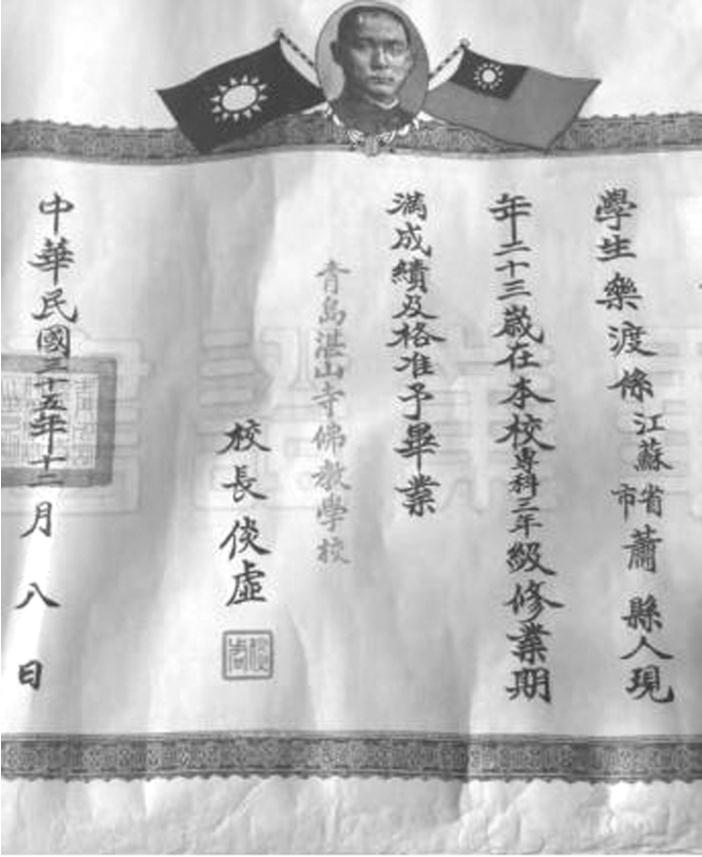 學生樂渡係江蘇省市蕭縣人現
年二十三歲在本校專科三年級修業期
滿成績及格准予畢業
青島湛山寺佛教學校
校長倓虛
中華民國三十五年十二月八日